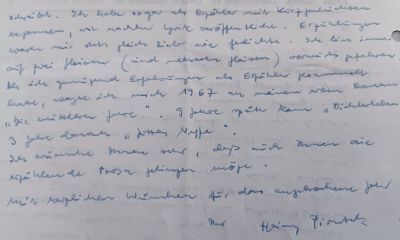 schreibt. Ich habe sogar als Erzähler mit Kurzgeschichten
begonnen, vor nachher Lyrik veröffentlichte. Erzählungen
waren mir stets gleich lieb wie Gedichte. Ich bin immer
auf zwei Gleisen (und mehreren Gleisen) vorwärts gefahren
Als ich genügend Erfahrungen als Erzähler gesammelt
hatte, wagte ich mich 1967 an meinen ersten Roman
„Die mittleren Jahre". 9 Jahre später kam „Dichterleben
3 Jahre danach „Jonas
Ich wünsche Ihnen sehr, daß auch Ihnen die
erzählende Prosa gelingen möge.
Mit herzlichen Wünschen für das angebrochene Jahr
Ihr Heinz Piontek